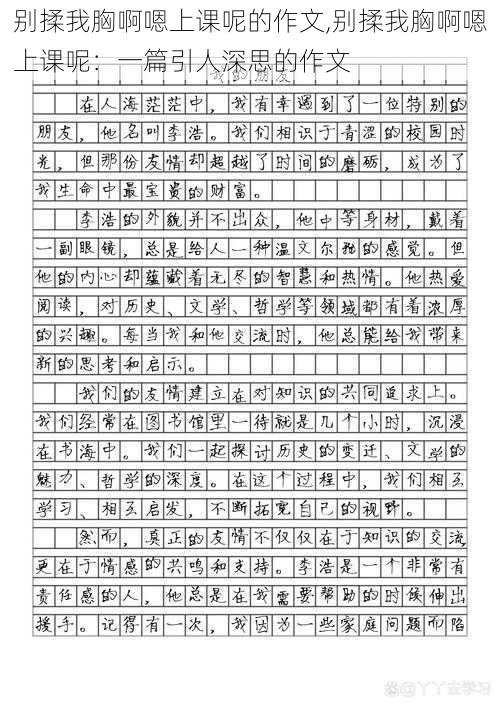 别揉我胸啊嗯上课呢的作文,别揉我胸啊嗯
上课呢：一篇引人深思的作文
我的朋友
在人海茫茫中，我有幸遇到了一位特别的
朋友，他名叫李浩。我们相识于青涩的校园时
光，但那份友情却超越了时间的磨砺，成为了
我生命中最宝贵的财富。
李浩的外貌并不出众，他中等身材，戴着
一副眼镜，总是给人一种温文尔雅的感觉。但
他的内心却蕴戴着无尽的智慧和热情。他热爱
阅读，对历史、文学、哲学等领域都有着浓厚
的兴趣。每当我和他交流时，他总能给我带来
新的思考和启示。
我们的友情建立在对知识的共同追求上。
我们经常在图书馆里一待就是几个小时，沉浸
在书海中。我们一起探讨历史的变迁、文学的
魅力、哲学的深度。在这个过程中，我们相互
学习、相互启发，不断拓宽自己的视野。
然而，真正的友情不仅仅在于知识的交流，
更在于情感的共鸣和支持。李浩是一个非常有
责任感的人，他总是在我需要帮助的时候伸出
援手。记得有一次，我因为一些家庭问题而陷
@丫丫去学习